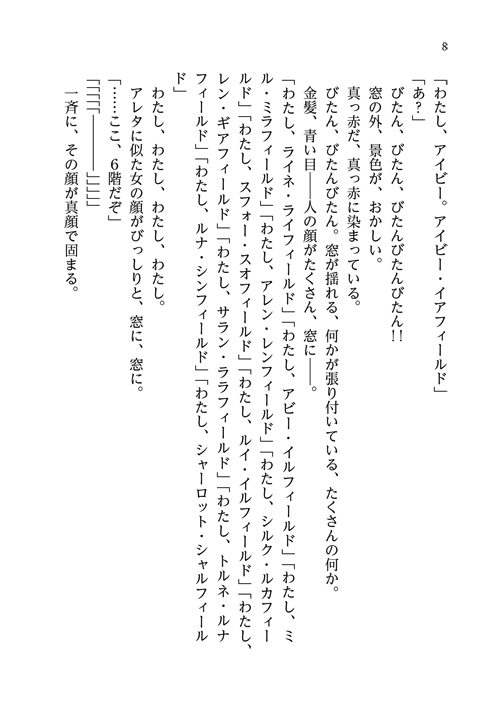 8
「わたし、アイビー。アイビー・イアフィールド」
「あ？」
　びたん、びたん、びたんびたんびたん!!
　窓の外、景色が、おかしい。
　真っ赤だ、真っ赤に染まっている。
　びたん、びたんびたん。窓が揺れる、何かが張り付いている、たくさんの何か。
　金髪、青い目――人の顔がたくさん、窓に――。
「わたし、ライネ・ライフィールド」「わたし、アビー・イルフィールド」「わたし、ミ
ル・ミラフィールド」「わたし、アレン・レンフィールド」「わたし、シルク・ルカフィー
ルド」「わたし、スフォー・スオフィールド」「わたし、ルイ・イルフィールド」「わたし、
レン・ギアフィールド」「わたし、サラン・ララフィールド」「わたし、トルネ・ルナ
フィールド」「わたし、ルナ・シンフィールド」「わたし、シャーロット・シャルフィール
ド」
　わたし、わたし、わたし、わたし。
　アレタに似た女の顔がびっしりと、窓に、窓に。
「……ここ、6階だぞ」
「「「「――――」」」」
　一斉に、その顔が真顔で固まる。